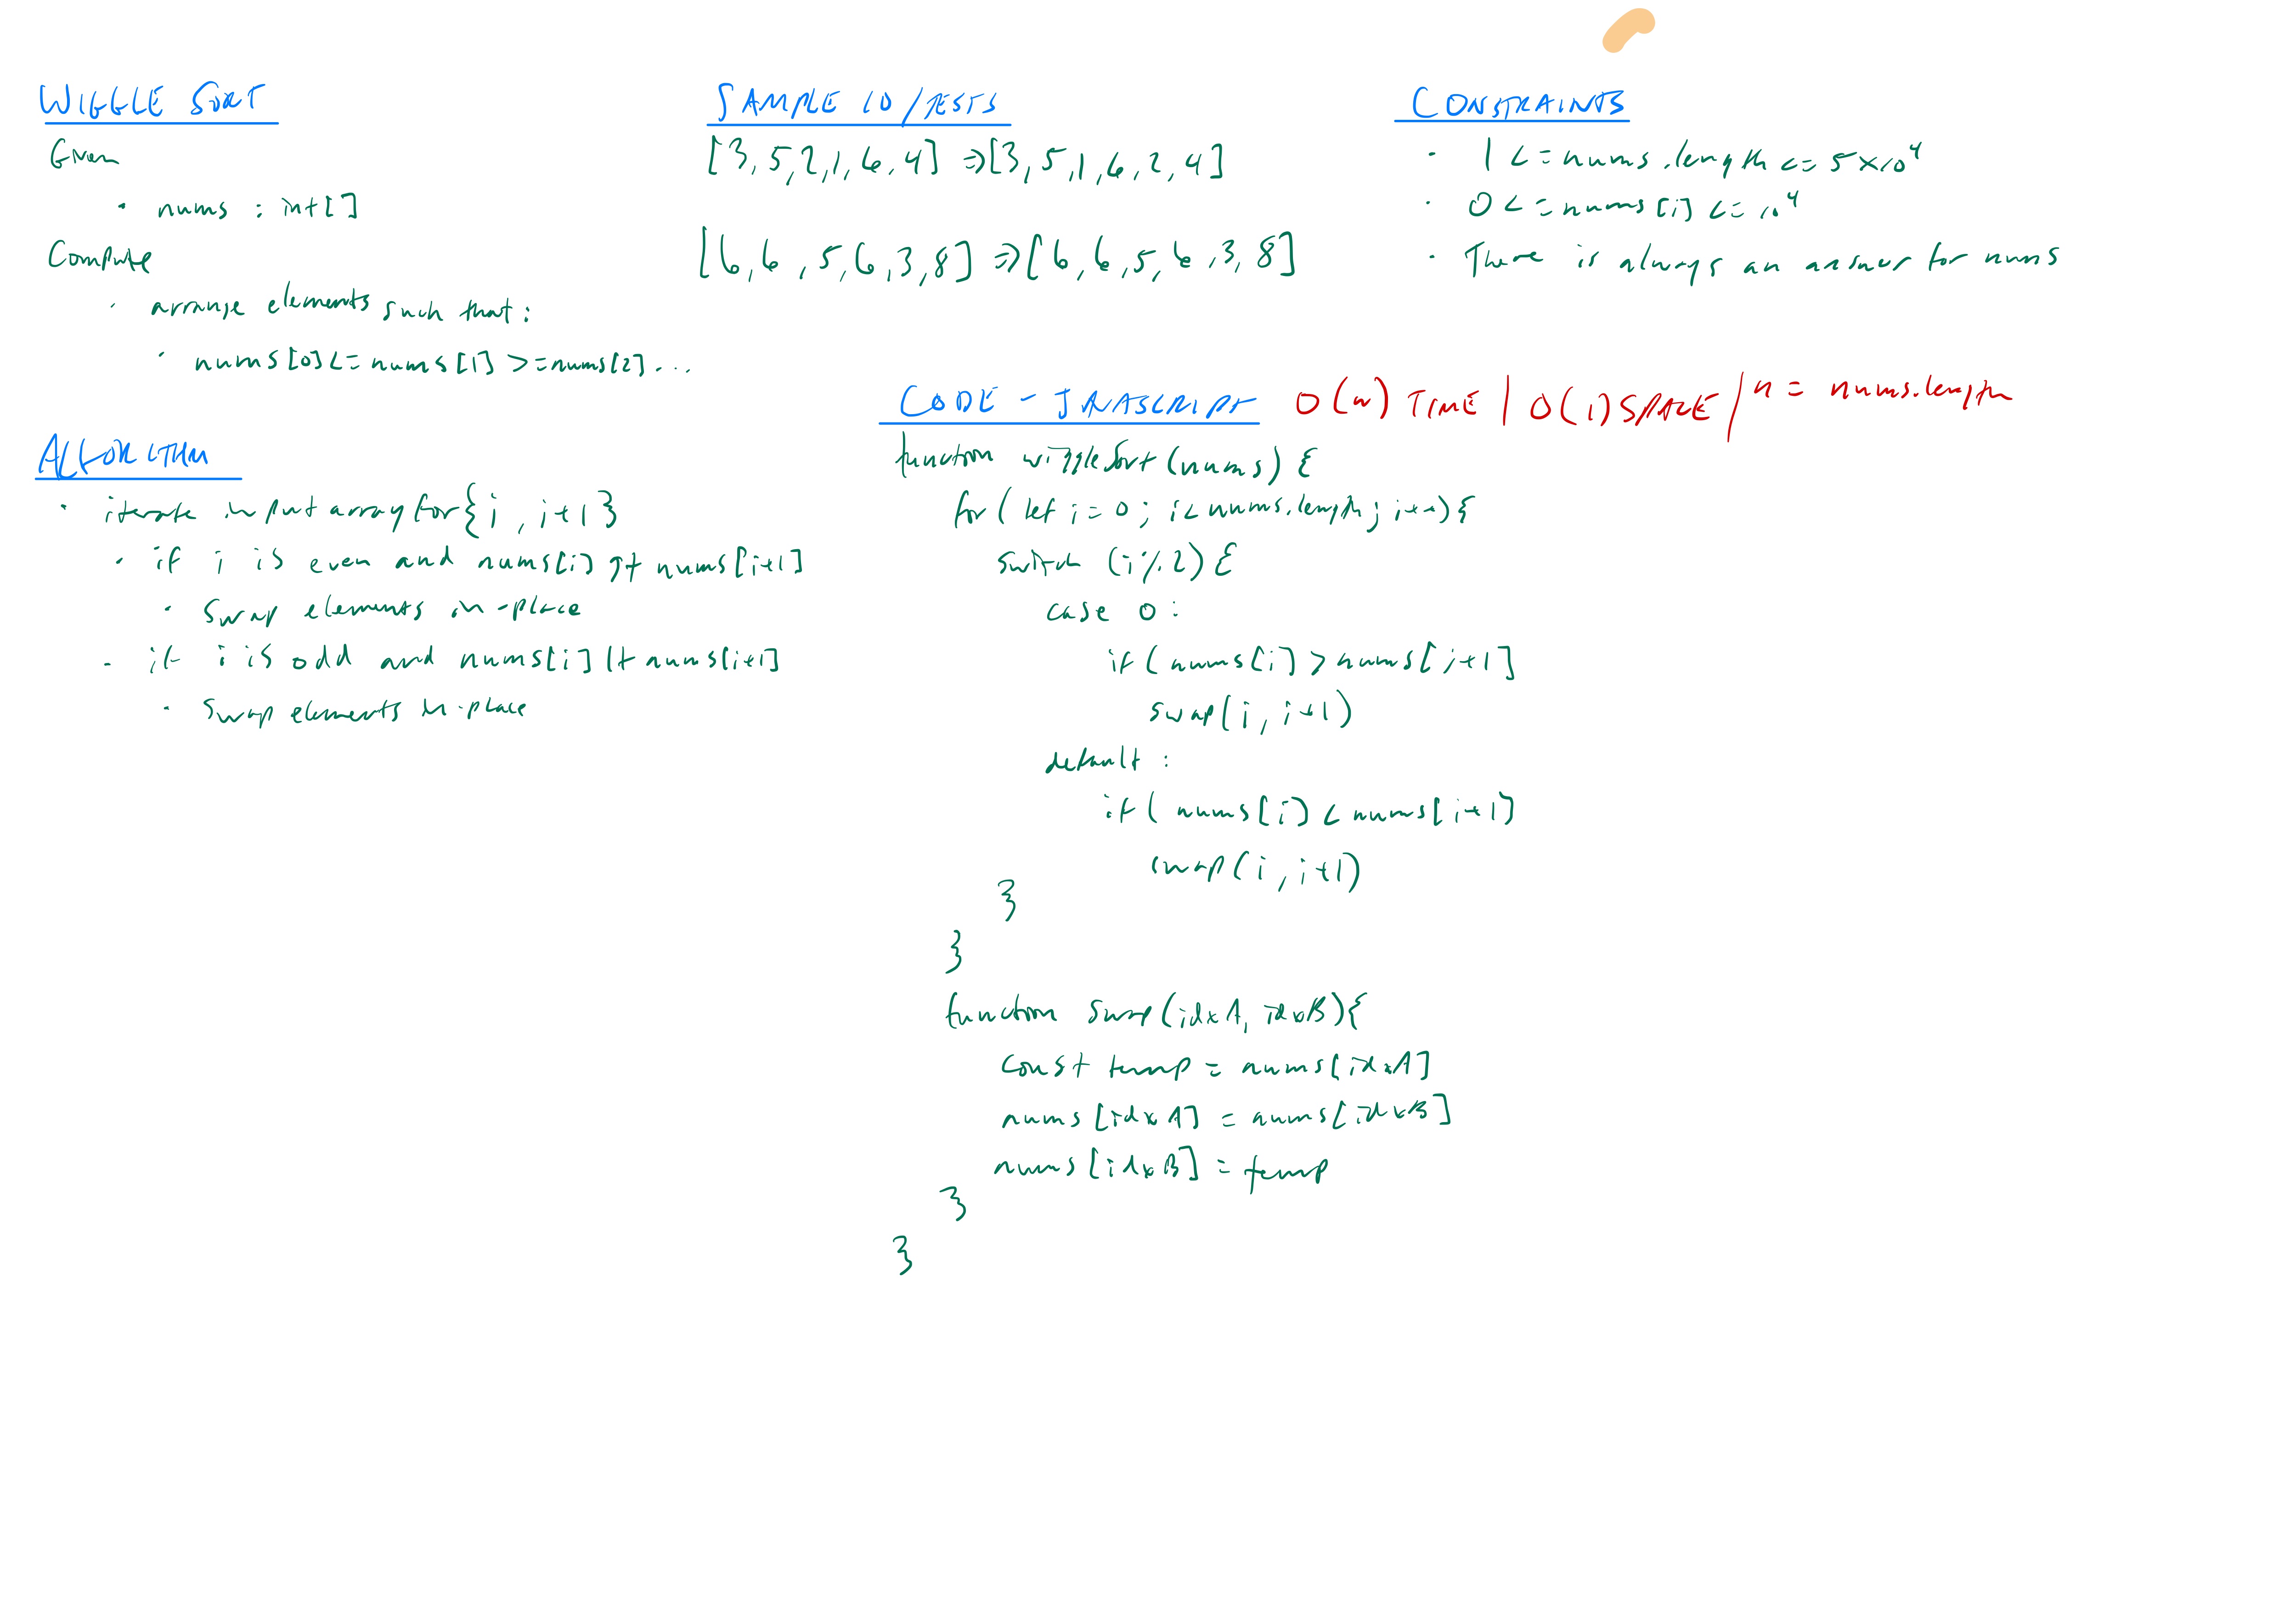 WIGGLE SORT
Given
· nums : int[]
Compute
· arrange elements such that:
· nums[0] <= nums[1] >= nums[2] ...
ALGORITHM
· iterate input array for {i, i+1}
· if i is even and nums[i] gt nums[i+1]
· swap elements in-place
· if i is odd and nums[i] lt nums[i+1]
· swap elements in-place
SAMPLE IO/TESTS
[3,5,2,1,6,4] => [3,5,1,6,2,4]
[6,6,5,6,3,8] => [6,6,5,6,3,8]
CONSTRAINTS
· 1 <= nums.length <= 5×10⁴
· 0 <= nums[i] <= 10⁴
· There is always an answer for nums
CODE - JAVASCRIPT O(n) TIME | O(1) SPACE / n = nums.length
function wiggleSort(nums) {
for (let i = 0; i < nums.length; i++) {
switch (i % 2) {
case 0:
if (nums[i] > nums[i+1]
swap(i, i+1)
default:
if (nums[i] < nums[i+1)
swap(i, i+1)
}
}
function swap(idxA, idxB) {
const temp = nums[idxA]
nums[idxA] = nums[idxB]
nums[idxB] = temp
}
}